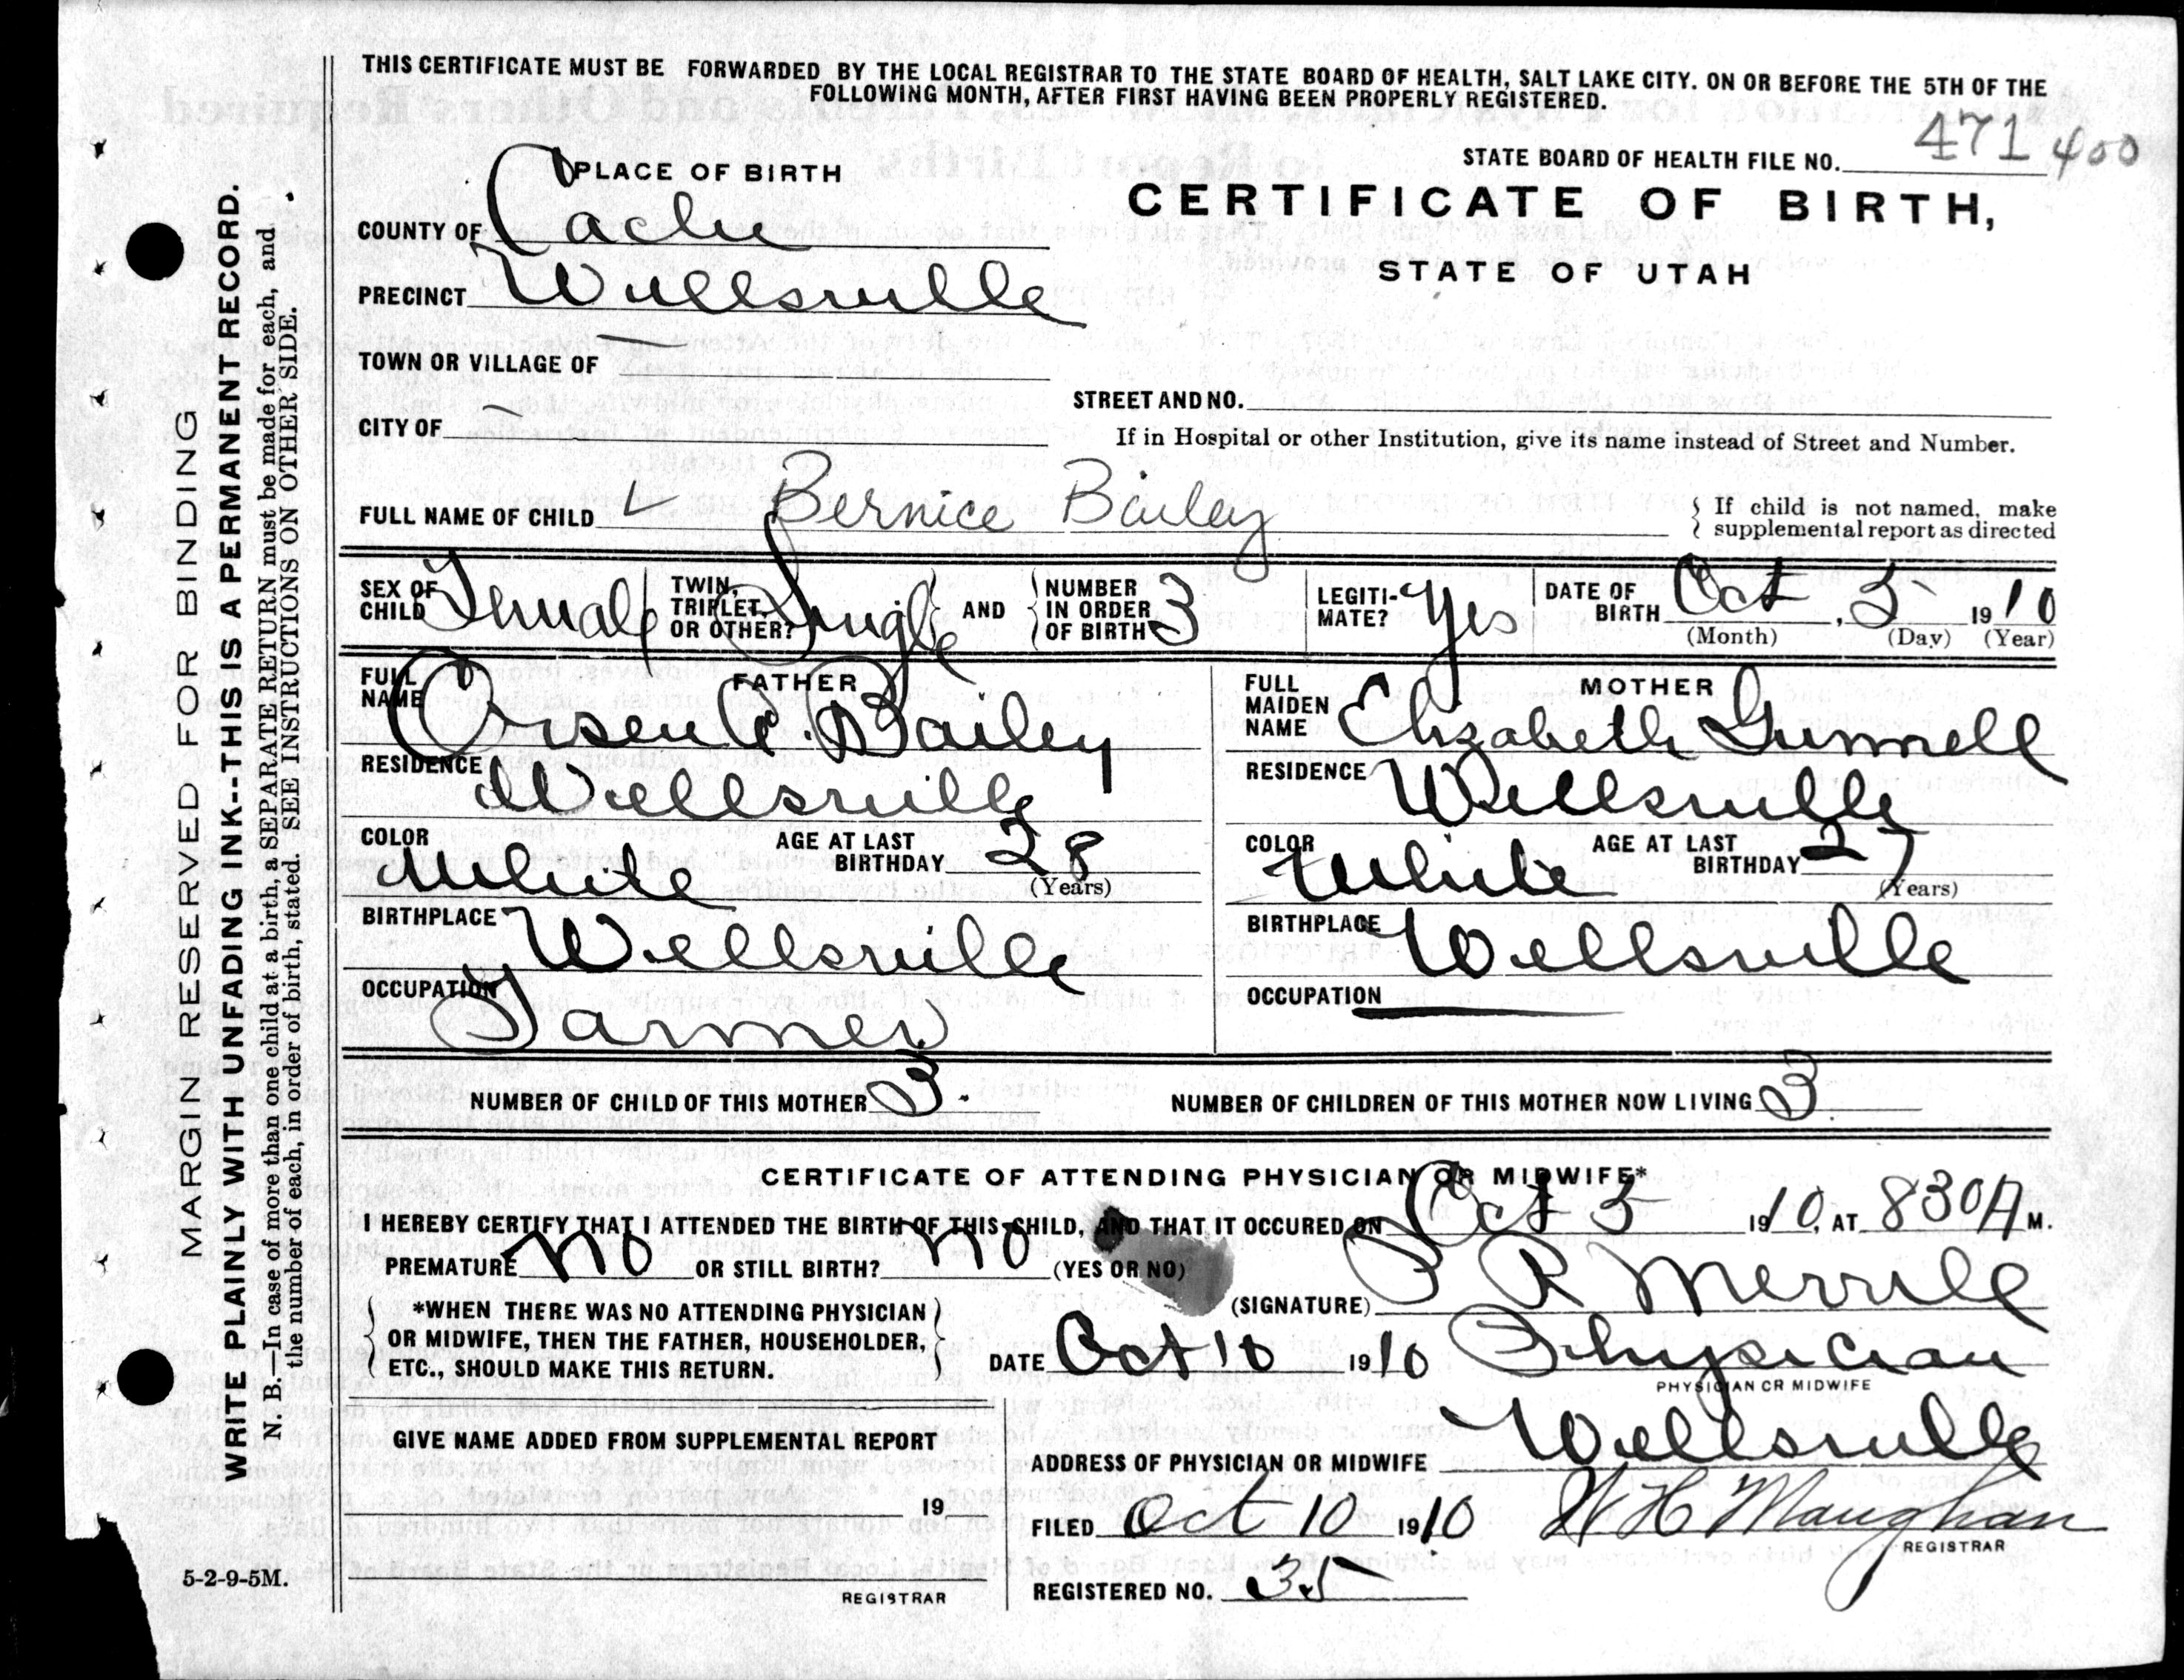 THIS CERTIFICATE MUST BE FORWARDED BY THE LOCAL REGISTRAR TO THE STATE BOARD OF HEALTH, SALT LAKE CITY. ON OR BEFORE THE 5TH OF THE
FOLLOWING MONTH, AFTER FIRST HAVING BEEN PROPERLY REGISTERED.
STATE BOARD OF HEALTH FILE NO. 471 400
PLACE OF BIRTH
CERTIFICATE OF BIRTH,
STATE OF UTAH
COUNTY OF Cache
PRECINCT Wellsville
TOWN OR VILLAGE OF —
CITY OF —
STREET AND NO.
If in Hospital or other Institution, give its name instead of Street and Number.
FULL NAME OF CHILD Bernice Bailey { If child is not named, make
{ supplemental report as directed
SEX OF CHILD Female
TWIN, TRIPLET, OR OTHER? Single } AND { NUMBER IN ORDER OF BIRTH 3
LEGITI-MATE? Yes
DATE OF BIRTH Oct, 5 1910
(Month) (Day) (Year)
FATHER
FULL NAME Orson A. Bailey
RESIDENCE Wellsville
COLOR White AGE AT LAST BIRTHDAY 28
(Years)
BIRTHPLACE Wellsville
OCCUPATION Farmer
MOTHER
FULL MAIDEN NAME Elizabeth Gunnell
RESIDENCE Wellsville
COLOR White AGE AT LAST BIRTHDAY 27
(Years)
BIRTHPLACE Wellsville
OCCUPATION
NUMBER OF CHILD OF THIS MOTHER 3. NUMBER OF CHILDREN OF THIS MOTHER NOW LIVING 3
CERTIFICATE OF ATTENDING PHYSICIAN OR MIDWIFE*
I HEREBY CERTIFY THAT I ATTENDED THE BIRTH OF THIS CHILD, AND THAT IT OCCURED ON Oct 5 1910, AT 830 A M.
PREMATURE no OR STILL BIRTH? no (YES OR NO)
(SIGNATURE) P R Merrill
*WHEN THERE WAS NO ATTENDING PHYSICIAN
OR MIDWIFE, THEN THE FATHER, HOUSEHOLDER,
ETC., SHOULD MAKE THIS RETURN.
DATE Oct 10 1910 Physician
PHYSICIAN OR MIDWIFE
GIVE NAME ADDED FROM SUPPLEMENTAL REPORT
19
REGISTRAR
ADDRESS OF PHYSICIAN OR MIDWIFE Wellsville
FILED Oct 10 1910 W H Maughan
REGISTRAR
REGISTERED NO. 35
5-2-9-5M.
MARGIN RESERVED FOR BINDING
WRITE PLAINLY WITH UNFADING INK--THIS IS A PERMANENT RECORD.
N. B.—In case of more than one child at a birth, a SEPARATE RETURN must be made for each, and
the number of each, in order of birth, stated. SEE INSTRUCTIONS ON OTHER SIDE.